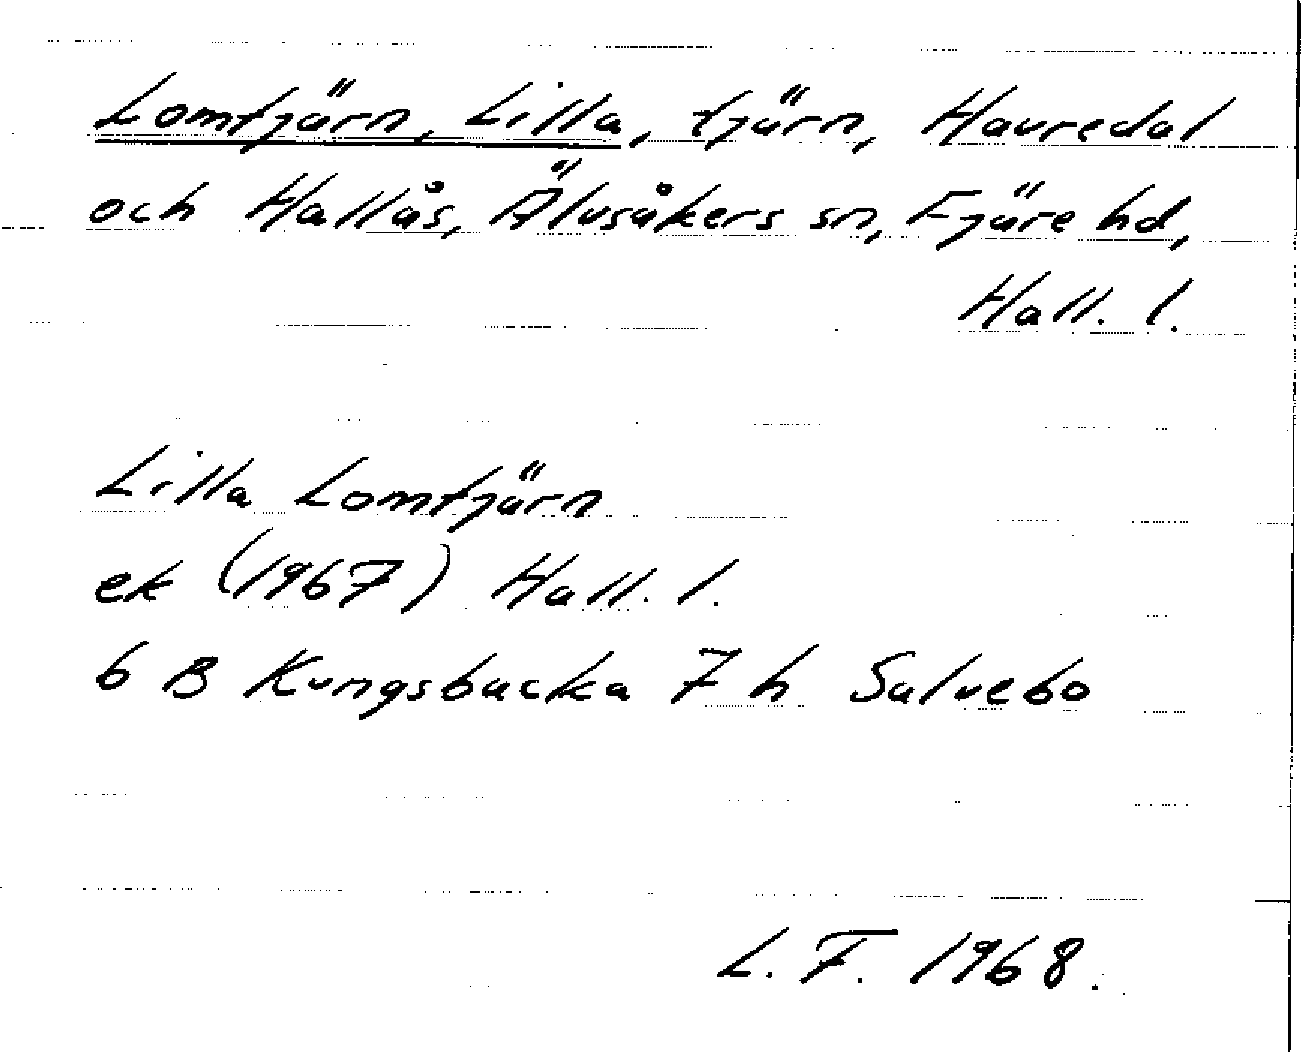 Lomtjärn, Lilla, tjärn, Havredal
och Hallås, Älvsåkers sn, Fjäre hd,
Hall. l.
Lilla Lomtjärn
ek (1967) Hall. l.
6 B Kungsbacka 7 h Salvebo
L. F. 1968.